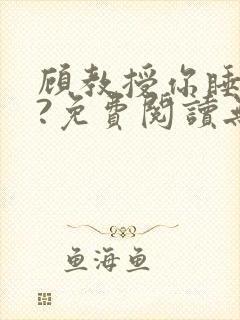 顾教授你睡
?免費閱讀
鱼海鱼